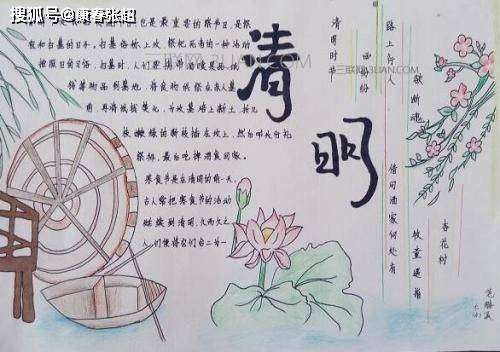 搜狐号@康春张
也是最重要的祭节日,是祭
祖和扫墓的日子。扫墓俗称上坟,祭祀死者的一种活动
按照旧的习俗,扫墓时,人们要携带酒食果品、纸
钱等物品到墓地,将食物供祭在亲人墓
前,再将纸钱焚化,为坟墓培上新土,折几
枝嫩绿的新枝插在坟上,然后叩头行礼
祭拜,最后吃掉酒食回家。
寒食节是在清明的前一天,
古人常把寒食节的活动
延续到清明,久而久之
人们便将它们合二为一
清明
三联网3LIAN.COM
清明时节
雨纷纷
路上行人
欲断魂
借问酒家何处有
牧童遥指
杏花村